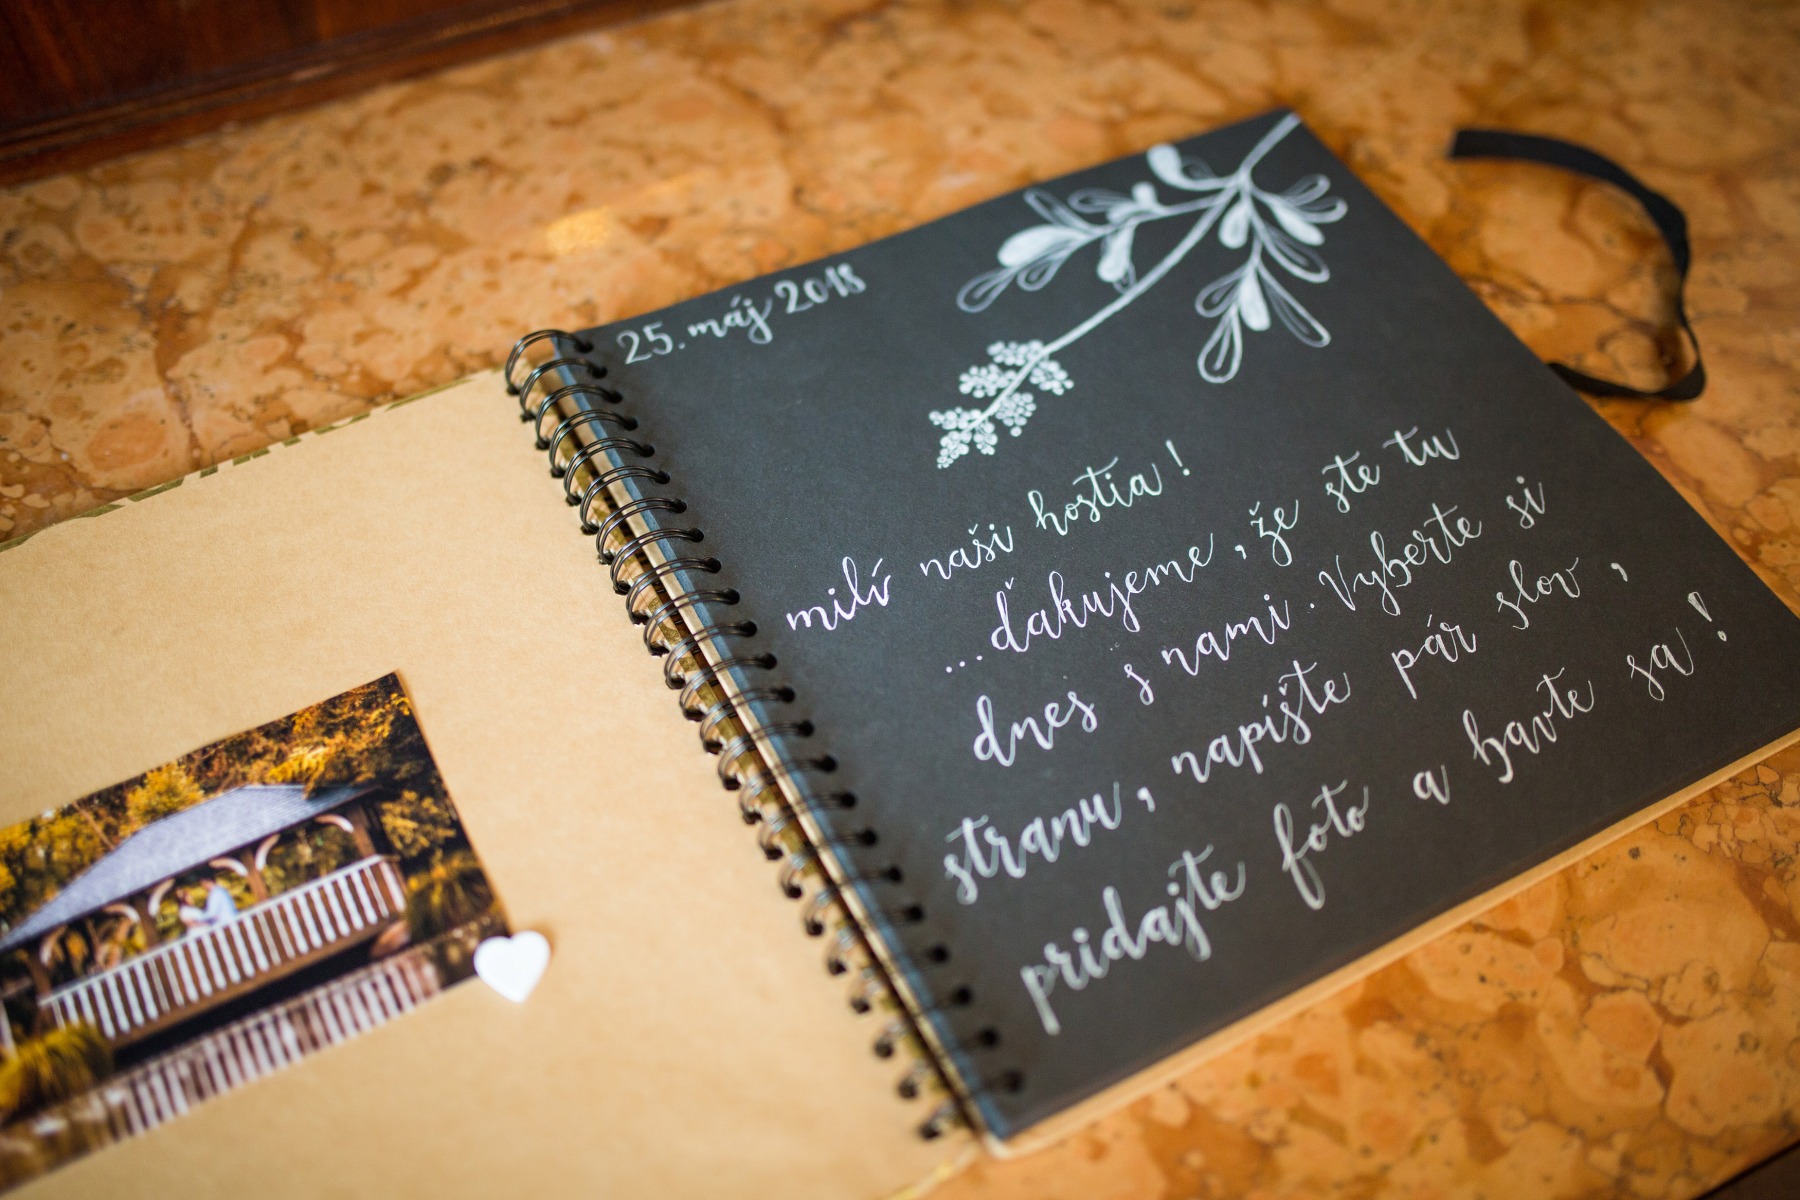 25. máj 2018
milí naši hostia!
...ďakujeme, že ste tu
dnes s nami. Vyberte si
stranu, napíšte pár slov,
pridajte foto a bavte sa!